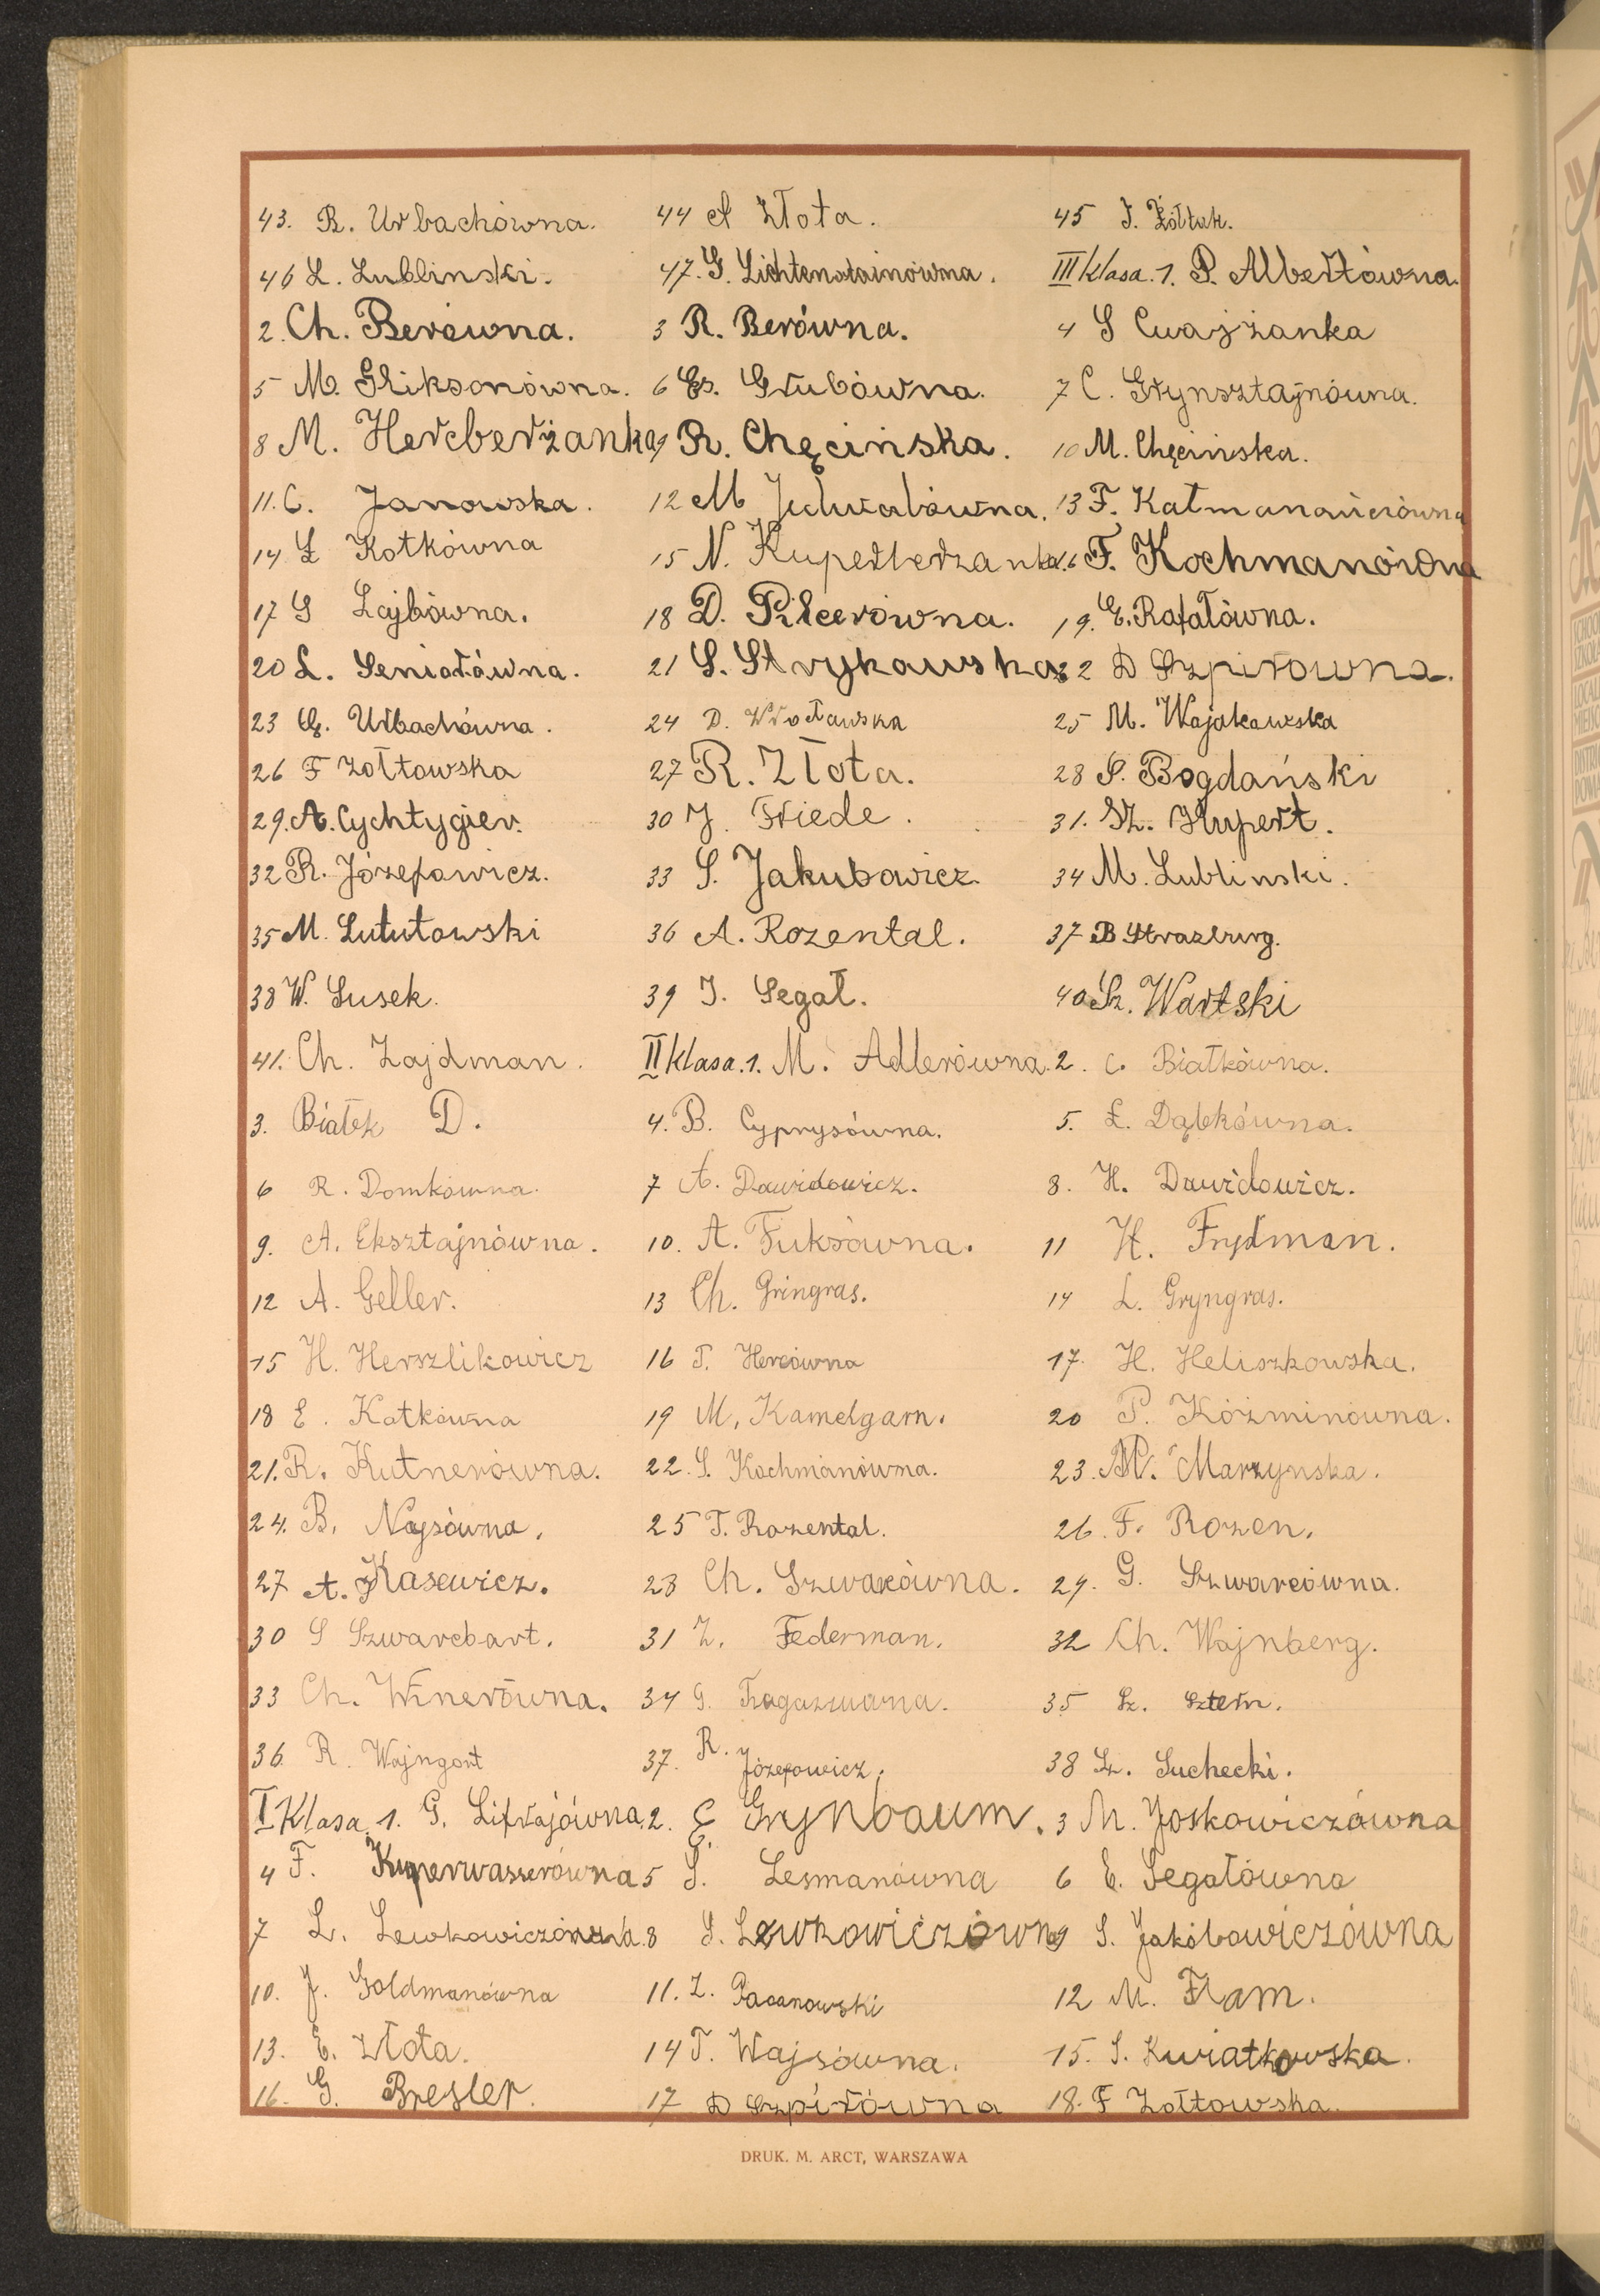 43. R. Urbachówna. 44 A Złota. 45 J. Żółtak.
46 L. Lublinski. 47. G. Lichtensztainówna. III klasa. 1. P. Albertówna.
2. Ch. Berówna. 3 R. Berówna. 4 S Cwajżanka
5 M. Gliksonówna. 6 Es. Grubówna. 7 C. Grynsztajnówna.
8 M. Hercberżanka 9 R. Chęcińska. 10 M. Chęcinska.
11. C. Janowska. 12 M Jedwabówna. 13 F. Katmanowiczówna
14 Ł Kotkówna 15 N. Kuperberzanka. 16 F. Kochmanówna
17 S Lajbówna. 18 D. Pilcerówna. 19. E. Rafałówna.
20 L. Seniorówna. 21 S. Strykowska 22 D Szpirówna.
23 G. Urbachówna. 24 D. Wrocławska 25 M. Wajskowska
26 F Zołtowska 27 R. Złota. 28 S. Bogdański
29. A. Cychtygier. 30 J. Friede. 31. Sz. Hupert.
32 R. Józefowicz. 33 S. Jakubowicz 34 M. Lublinski.
35 M. Lututowski 36 A. Rozental. 37 B Strazburg.
38 W. Susek. 39 J. Segał. 40 Sz. Wartski
41. Ch. Zajdman. II klasa. 1. M. Adlerówna. 2. C. Białkówna.
3. Białek D. 4. B. Cyprysówna. 5. Ł. Dąbkówna.
6 R. Domkówna. 7 A. Dawidowicz. 8. H. Dawidowicz.
9. A. Eksztajnówna. 10. A. Fuksówna. 11 H. Frydman.
12 A. Geller. 13 Ch. Gringras. 14 L. Gryngras.
15 H. Herszlikowicz 16 T. Hercówna 17. H. Heliszkowska.
18 E. Katkówna 19 M. Kamelgarn. 20 P. Kóźminówna.
21. R. Kutnerówna. 22. S. Kochmanówna. 23. M. Marzynska.
24. B. Najsówna. 25 T. Rozental. 26. F. Rozen.
27 A. Kasewicz. 28 Ch. Szwarcówna. 29. G. Szwarcówna.
30 S Szwarcbart. 31 Z. Federman. 32 Ch. Wajnberg.
33 Ch. Winerówna. 34 G. 35 Sz. Sztern.
36. R. Wajngort 37. R. Józefowicz. 38 Sz. Suchecki.
I Klasa. 1. G. Lifrajówna. 2. E. Grynbaum. 3 M. Joskowiczówna
4 F. Kuperwasserówna 5 S. Lesmanówna 6 E. Segałówna
7 L. Lewkowiczówna. 8 S. Lewkowiczówna 9 S. Jakóbowiczówna
10. J. Goldmanówna 11. Z. Pacanowski 12 M. Flam.
13. E. Złota. 14 T. Wajsówna. 15. S. Kwiatkowska.
16. G. Bresler. 17 D Szpirówna 18. F Zołtowska.
DRUK. M. ARCT, WARSZAWA